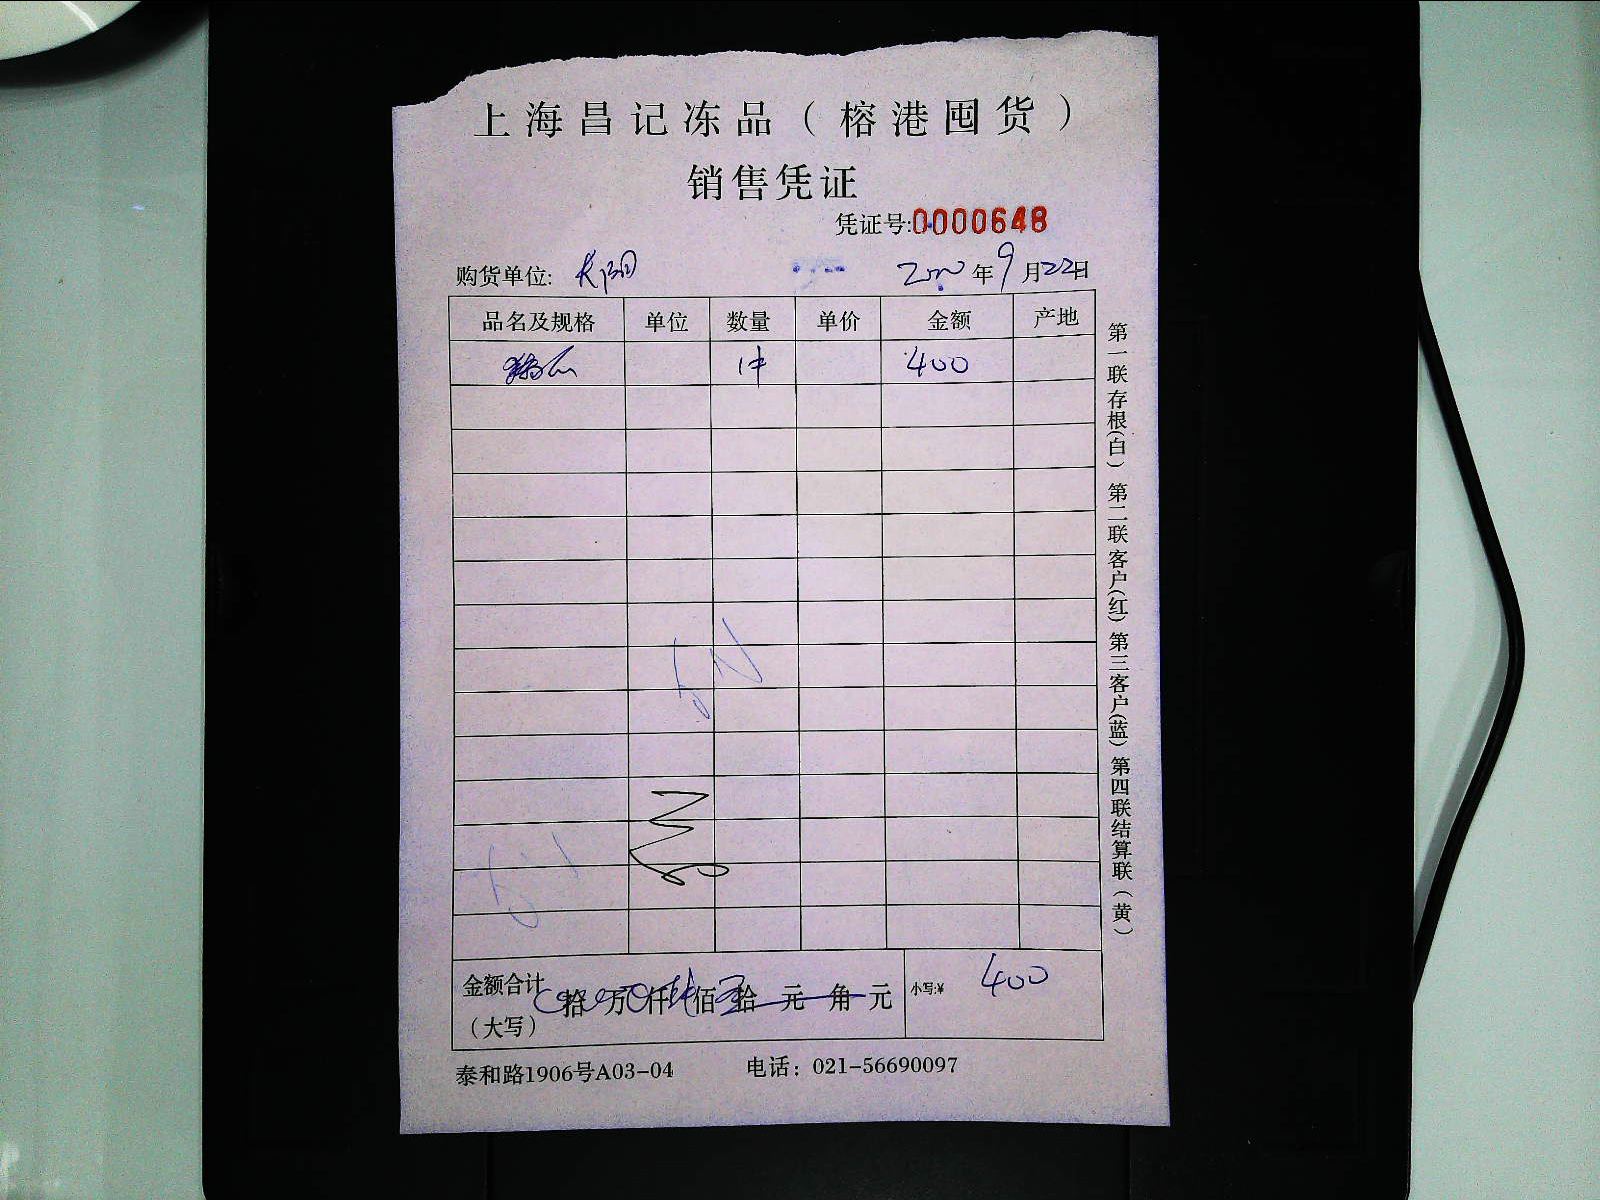 上海昌记冻品（榕港囤货）
销售凭证
凭证号:0000648
购货单位: 年9月22日
品名及规格 单位 数量 单价 金额 产地
1件 400
金额合计 拾 万 仟 佰 拾 元 角 元 小写:¥ 400
（大写）
泰和路1906号A03-04 电话：021-56690097
第一联存根(白) 第二联客户(红) 第三客户(蓝) 第四联结算联(黄)